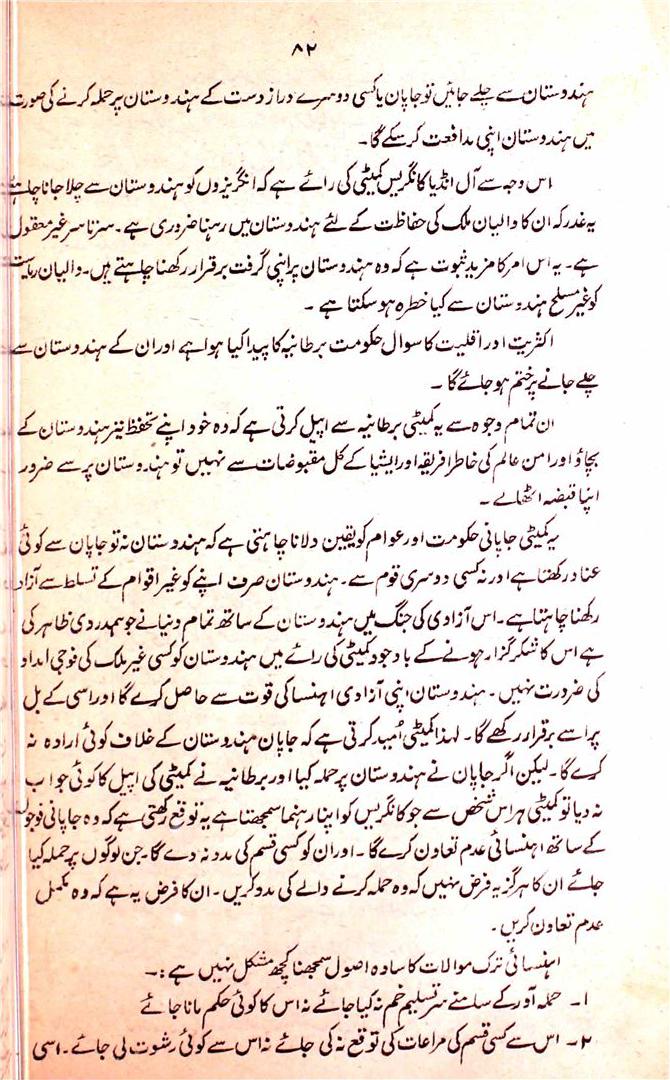 ۸۲
ہندوستان سے چلے جائیں تو جاپان یا کسی دوسرے دراز دست کے ہندوستان پر حملہ کرنے کی صورت
میں ہندوستان اپنی مدافعت کر سکے گا۔
اس وجہ سے آل انڈیا کانگریس کمیٹی کی رائے ہے کہ انگریزوں کو ہندوستان سے چلا جانا چاہئے
یہ عذر کہ ان کا والیان ملک کی حفاظت کے لئے ہندوستان میں رہنا ضروری ہے۔ سرتاسر غیر معقول
ہے۔ یہ اس امر کا مزید ثبوت ہے کہ وہ ہندوستان پر اپنی گرفت برقرار رکھنا چاہتے ہیں۔ والیان ریاست
کو غیر مسلح ہندوستان سے کیا خطرہ ہو سکتا ہے ۔
اکثریت اور اقلیت کا سوال حکومت برطانیہ کا پیدا کیا ہوا ہے اور ان کے ہندوستان سے
چلے جانے پر ختم ہو جائے گا ۔
ان تمام وجوہ سے یہ کمیٹی برطانیہ سے اپیل کرتی ہے کہ وہ خود اپنے تحفظ نیز ہندوستان کے
بچاؤ اور امن عالم کی خاطر افریقہ اور ایشیا کے کل مقبوضات سے نہیں تو ہندوستان پر سے ضرور
اپنا قبضہ اٹھالے ۔
یہ کمیٹی جاپانی حکومت اور عوام کو یقین دلانا چاہتی ہے کہ ہندوستان نہ تو جاپان سے کوئی
عناد رکھتا ہے اور نہ کسی دوسری قوم سے۔ ہندوستان صرف اپنے کو غیر اقوام کے تسلط سے آزاد
رکھنا چاہتا ہے۔ اس آزادی کی جنگ میں ہندوستان کے ساتھ تمام دنیا نے جو ہمدردی ظاہر کی
ہے اس کا شکر گزار ہونے کے باوجود کمیٹی کی رائے میں ہندوستان کو کسی غیر ملک کی فوجی امداد
کی ضرورت نہیں ۔ ہندوستان اپنی آزادی اہنسا کی قوت سے حاصل کرے گا اور اسی کے بل
پر اسے برقرار رکھے گا۔ لہذا کمیٹی اُمید کرتی ہے کہ جاپان ہندوستان کے خلاف کوئی ارادہ نہ
کرے گا۔ لیکن اگر جاپان نے ہندوستان پر حملہ کیا اور برطانیہ نے کمیٹی کی اپیل کا کوئی جواب
نہ دیا تو کمیٹی ہر اس شخص سے جو کانگریس کو اپنا رہنما سمجھتا ہے یہ توقع رکھتی ہے کہ وہ جاپانی فوجوں
کے ساتھ اہنسائی عدم تعاون کرے گا ۔ اور ان کو کسی قسم کی مدد نہ دے گا۔ جن لوگوں پر حملہ کیا
جائے ان کا ہرگز یہ فرض نہیں کہ وہ حملہ کرنے والے کی مدد کریں ۔ ان کا فرض یہ ہے کہ وہ مکمل
عدم تعاون کریں ۔
اہنسائی ترک موالات کا سادہ اصول سمجھنا کچھ مشکل نہیں ہے :۔
۱۔ حملہ آور کے سامنے سر تسلیم خم نہ کیا جائے نہ اس کا کوئی حکم مانا جائے
۲۔ اس سے کسی قسم کی مراعات کی توقع نہ کی جائے نہ اس سے کوئی رشوت لی جائے ۔ اسی